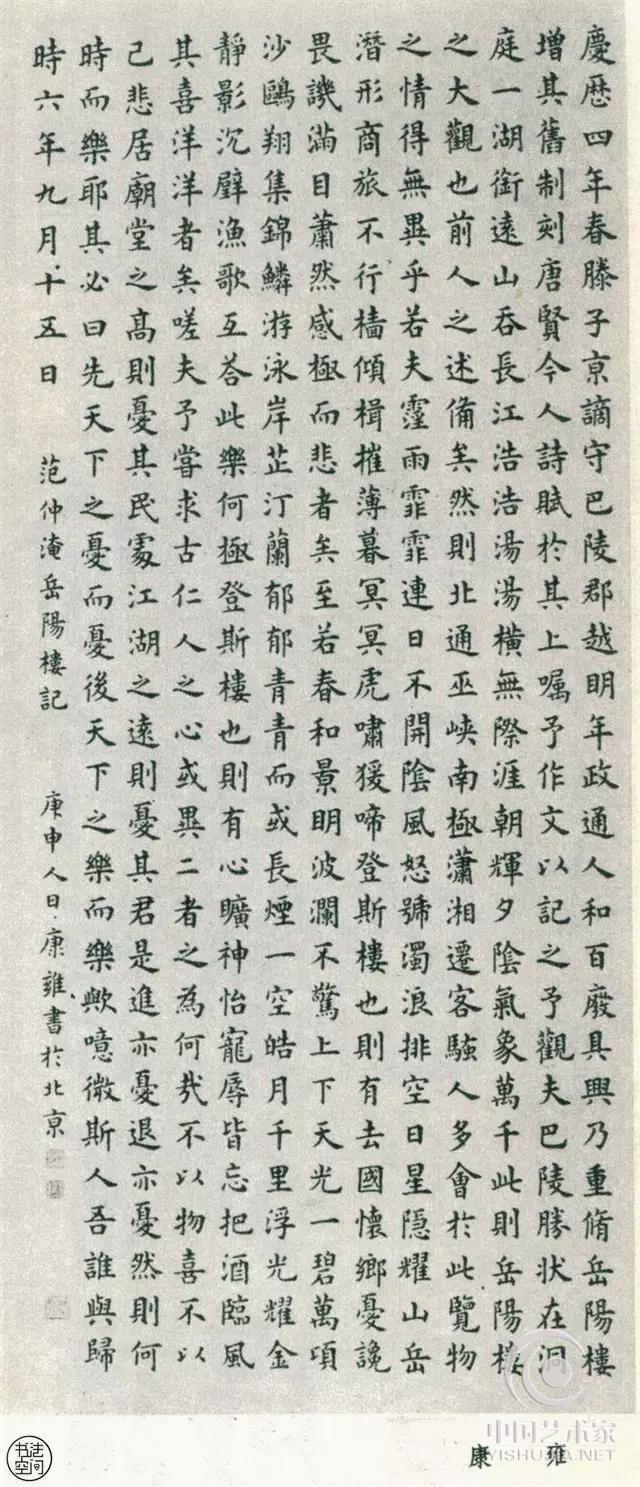 慶歷四年春滕子京謫守巴陵郡越明年政通人和百廢具興乃重脩岳陽樓
增其舊制刻唐賢今人詩賦於其上嘱予作文以記之予觀夫巴陵勝状在洞
庭一湖銜遠山吞長江浩浩湯湯橫無際涯朝輝夕陰氣象萬千此則岳陽樓
之大觀也前人之述備矣然則北通巫峽南極瀟湘遷客騷人多會於此覽物
之情得無異乎若夫霪雨霏霏連日不開陰風怒號濁浪排空日星隱耀山岳
潛形商旅不行檣傾楫摧薄暮冥冥虎嘯猨啼登斯樓也則有去國懷鄉憂讒
畏譏滿目蕭然感極而悲者矣至若春和景明波瀾不驚上下天光一碧萬頃
沙鷗翔集錦鱗游泳岸芷汀蘭郁郁青青而或長煙一空皓月千里浮光耀金
靜影沉壁漁歌互荅此樂何極登斯樓也則有心曠神怡寵辱皆忘把酒臨風
其喜洋洋者矣嗟夫予嘗求古仁人之心或異二者之為何哉不以物喜不以
己悲居廟堂之高則憂其民處江湖之遠則憂其君是進亦憂退亦憂然則何
時而樂耶其必曰先天下之憂而憂後天下之樂而樂歟噫微斯人吾誰與歸
時六年九月十五日
范仲淹岳陽樓記
庚申人日康雍書於北京
中国艺术家
YISHUJIA.NET
康雍
书法
空间